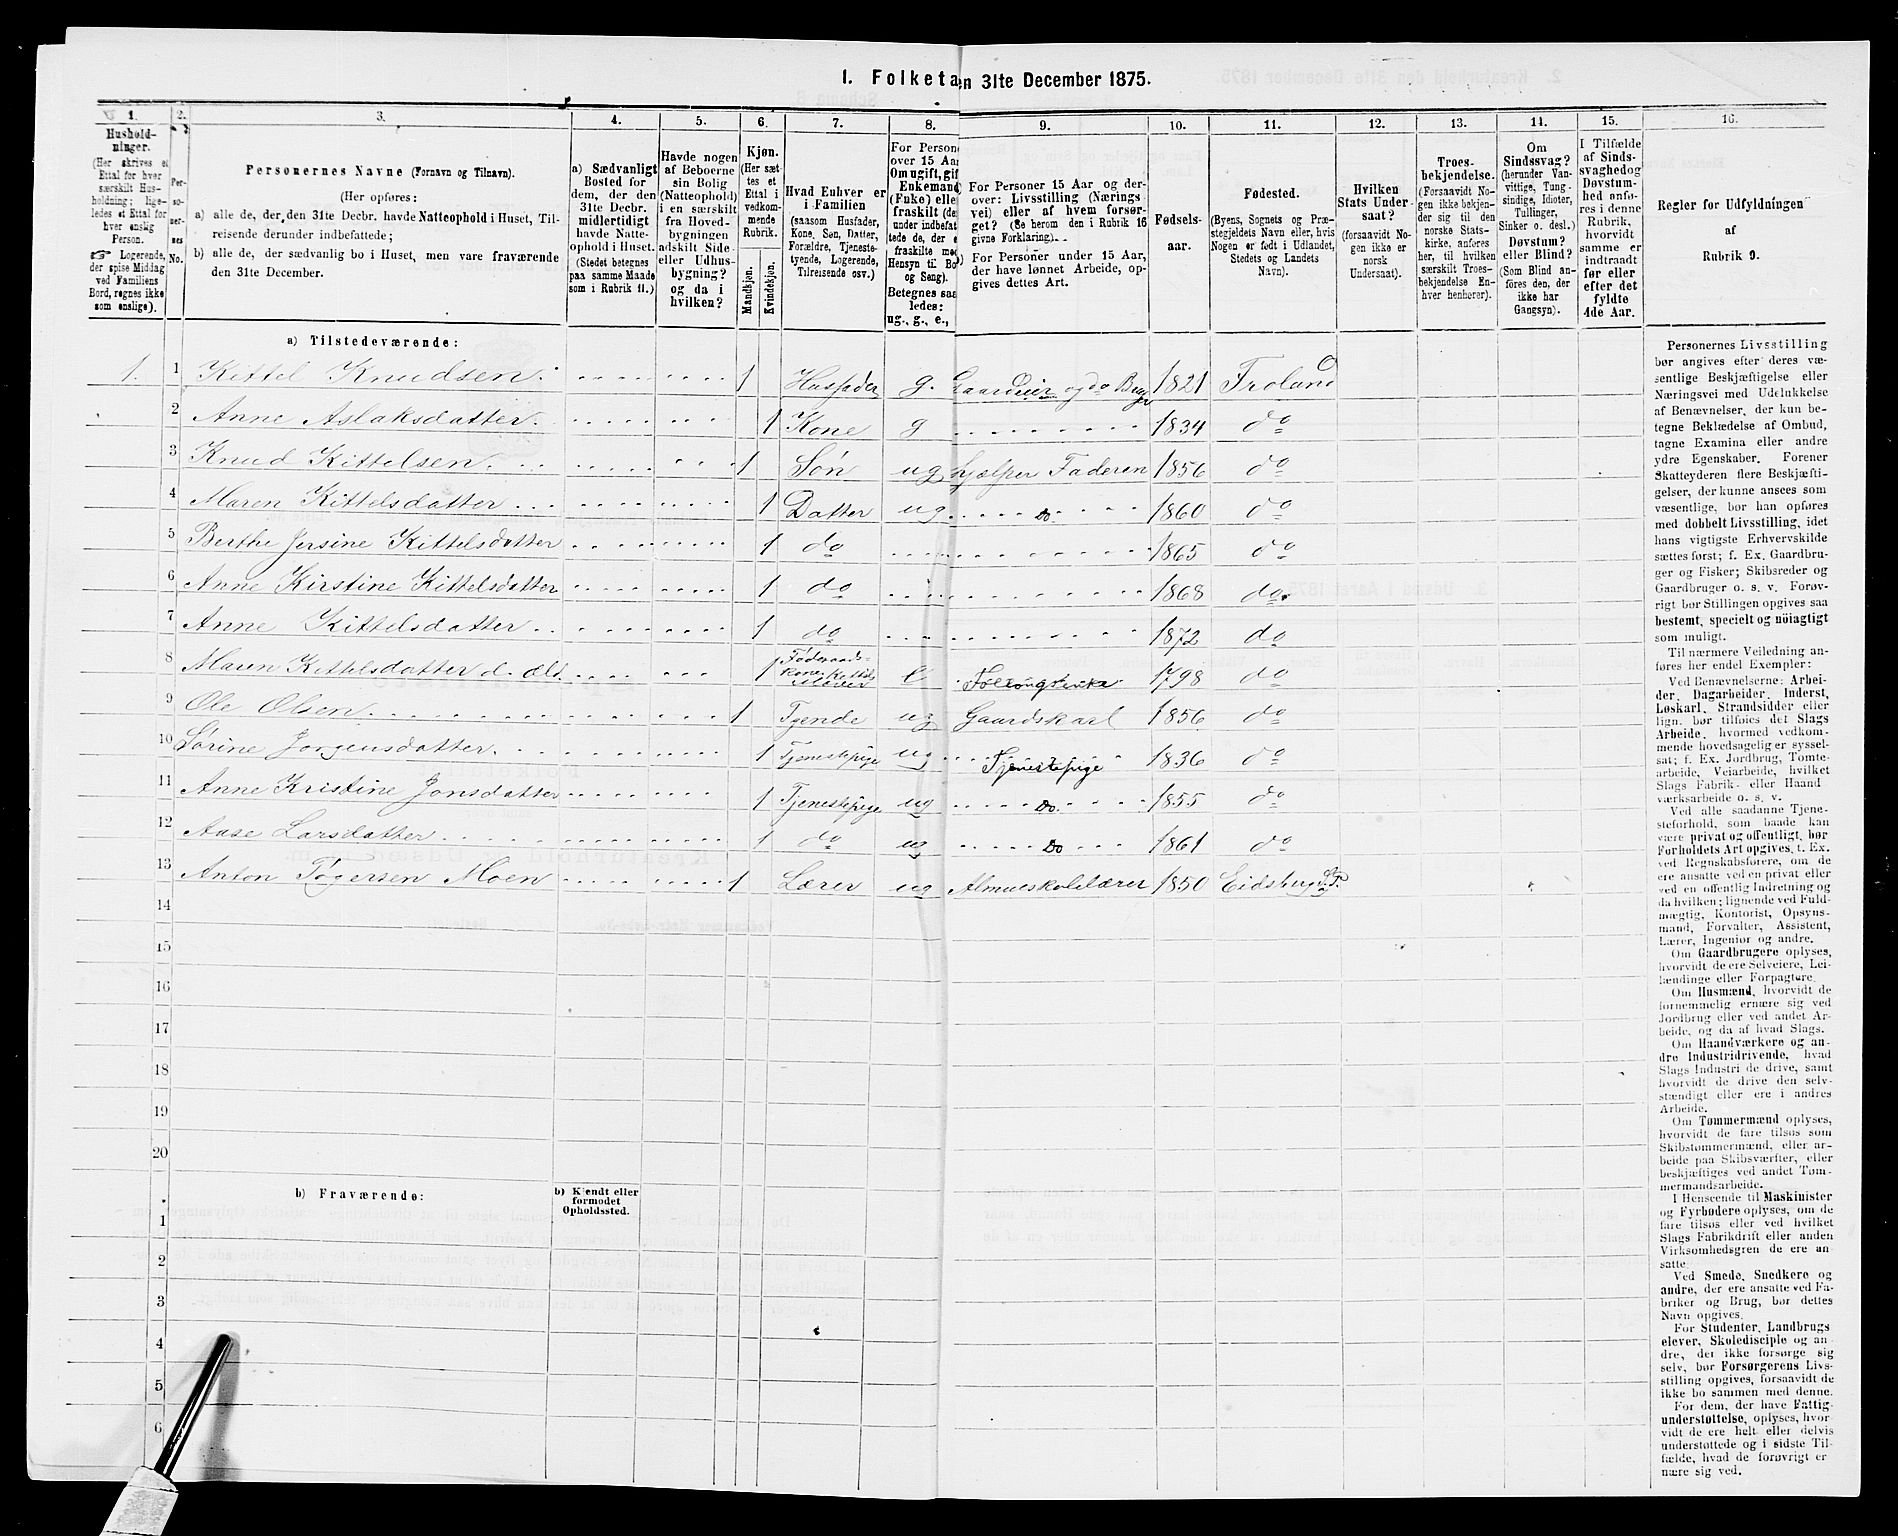 1. Folketa en 31te December 1875.
1. 2. 3. 4. 5. 6. 7. 8. 9. 10. 11. 12. 13. 14. 15. 16.
Hushold-
ninger.
(Her skrives et
Ettal for hver
særskilt Hus-
holdning; lige-
ledes et Ettal for
hver enslig
Person.
☞ Logerende,
der spise Middag
ved Familiens
Bord, regnes ikke
som enslige).
Per-
so-
ner-
nes
No.
Personernes Navne (Fornavn og Tilnavn).
(Her opføres:
a) alle de, der den 31te Decbr. havde Natteophold i Huset, Til-
reisende derunder indbefattede;
b) alle de, der sædvanlig bo i Huset, men vare fraværende
den 31te December.
a) Sædvanligt
Bosted for
dem, der den
31te Decbr.
midlertidigt
havde Natte-
ophold i Huset.
(Stedet betegnes
paa samme Maade
som i Rubrik 11.)
Havde nogen
af Beboerne
sin Bolig
(Natteophold)
i en særskilt
fra Hoved-
bygningen
adskilt Side-
eller Udhus-
bygning?
og da i
hvilken?
Kjøn.
(Her sæt-
tes et
Ettal i
vedkom-
mende
Rubrik.
Mandkjøn.
Kvindekjøn.
Hvad Enhver er
i Familien
(saasom Husfader,
Kone, Søn, Datter,
Forældre, Tjeneste-
tyende, Logerende,
Tilreisende osv.)
For Person
over 15 Aar
Om ugift, gif
Enkemand
(Enke) elle
fraskilt (de
under indbefat
tede de, der e
fraskilte med
Hensyn til Bo
og Seng).
Betegnes saa
ledes:
ug., g., e.,
For Personer 15 Aar og der-
over: Livsstilling (Nærings
vei) eller af hvem forsør-
get? (Se herom den i Rubrik 16
givne Forklaring).
For Personer under 15 Aar,
der have lønnet Arbeide, op-
gives dettes Art.
Fødsels-
aar.
Fødested.
(Byens, Sognets og Præ-
stegjeldets Navn eller, hvis
Nogen er født i Udlandet,
Stedets og Landets
Navn).
Hvilken
Stats Under-
saat?
(forsaavidt No-
gen ikke er
norsk
Undersaat).
Troes-
bekjendelse.
(Forsaavidt No-
gen ikke bekjen-
der sig til den
norske Stats-
kirke, anføres
her, til hvilken
særskilt Troes-
bekjendelse En-
hver henhører).
Om
Sindssvag?
(herunder Van-
vittige, Tung-
sindige, Idioter,
Tullinger,
Sinker o. desl.)
Døvstum?
eller Blind?
(Som Blind an-
føres den, der
ikke har
Gangsyn).
I Tilfælde
af Sinds-
svaghed og
Døvstum-
hed anfø-
res i denne
Rubrik,
hvorvidt
samme er
indtraadt
før eller
efter det
fyldte
4de Aar.
Regler for Udfyldningen
af
Rubrik 9.
a) Tilstedeværende:
1. 1 Kittel Knudsen 1 Husfader g. Gaardeier og do Bruger 1821 Froland
2 Anne Aslaksdatter 1 Kone g 1834 do
3 Knud Kittelsen 1 Søn ug hjelper Faderen 1856 do
4 Maren Kittelsdatter 1 Datter ug Do 1860 do
5 Berthe Jersine Kittelsdatter 1 do 1865 do
6 Anne Kirstine Kittelsdatter 1 do 1868 do
7 Anne Kittelsdatter 1 do 1872 do
8 Maren Kittelsdatter d. æld. 1 Føderaads-
kone Kittels
Moder e 1798 do
9 Ole Olsen 1 Tyende ug Gaardskarl 1856 do
10 Sørine Jørgensdatter 1 Tjenestepige ug Tjenestepige 1836 do
11 Anne Kristine Jonsdatter 1 Tjenestepige ug Do 1855 do
12 Aase Larsdatter 1 do ug Do 1861 do
13 Anton Tøgersen Moen 1 Lærer ug Almueskolelærer 1850 Eidsberg P.
14
15
16
17
18
19
20
b) Fraværende:
b) Kjendt eller
formodet
Opholdssted.
1
2
3
4
5
6
Personernes Livsstilling
bør angives efter deres væ-
sentlige Beskjæftigelse eller
Næringsvei med Udelukkelse
af Benævnelser, der kun be-
tegne Beklædelse af Ombud,
tagne Examina eller andre
ydre Egenskaber. Forener
Skatteyderen flere Beskjæfti-
gelser, der kunne ansees som
væsentlige, bør han opføres
med dobbelt Livsstilling, idet
hans vigtigste Erhvervskilde
sættes først; f. Ex. Gaardbru-
ger og Fisker; Skibsreder og
Gaardbruger o. s. v. Forøv-
rigt bør Stillingen opgives saa
bestemt, specielt og nöiagtigt
som muligt.
Til nærmere Veiledning an-
føres her endel Exempler:
Ved Benævnelserne: Arbei-
der, Dagarbeider, Inderst,
Løskarl, Strandsidder eller
lign. bør tilføies det Slags
Arbeide, hvormed vedkom-
mende hovedsagelig er syssel-
sat; f. Ex. Jordbrug, Tomte-
arbeide, Veiarbeide, hvilket
Slags Fabrik- eller Haand
værksarbeide o. s. v.
Ved alle saadanne Tjene-
steforhold, som baade kan
være privat og offentligt, bør
Forholdets Art opgives, f. Ex.
ved Regnskabsførere, om de
ere ansatte ved en privat eller
ved en offentlig Indretning og
da hvilken; lignende ved Fuld-
mægtig, Kontorist, Opsyns-
mand, Forvalter, Assistent,
Lærer, Ingeniør og andre.
Om Gaardbrugere oplyses,
hvorvidt de ere Selveiere, Lei-
lændinge eller Forpagtere.
Om Husmænd, hvorvidt de
fornemmelig ernære sig ved
Jordbrug eller ved andet Ar-
beide, og da af hvad Slags.
Om Haandværkere og an-
dre Industridrivende, hvad
Slags Industri de drive, samt
hvorvidt de drive den selv-
stændigt eller ere i andres
Arbeide.
Om Tømmermænd oplyses,
hvorvidt de fare tilsøs som
Skibstømmermænd, eller ar-
beide paa Skibsværfter, eller
beskjæftiges ved andet Tøm-
mermandsarbeide.
I Henseende til Maskinister
og Fyrbødere oplyses, om de
fare tilsøs eller ved hvilket
Slags Fabrikdrift eller anden
Virksomhedsgren de ere an-
satte.
Ved Smede, Snedkere og
andre, der ere ansatte ved Fa-
briker og Brug, bør dettes
Navn opgives.
For Studenter, Landbrugs
elever, Skoledisciple og an
dre, der ikke forsørge sig
selv, bør Forsørgerens Livs-
stilling opgives, forsaavidt de
ikke bo sammen med denne.
For dem, der have Fattig
understøttelse, oplyses, hvor-
vidt de ere helt eller delvis
understøttede og i sidste Til-
fælde, hvad de forøvrigt er
nære sig ved.